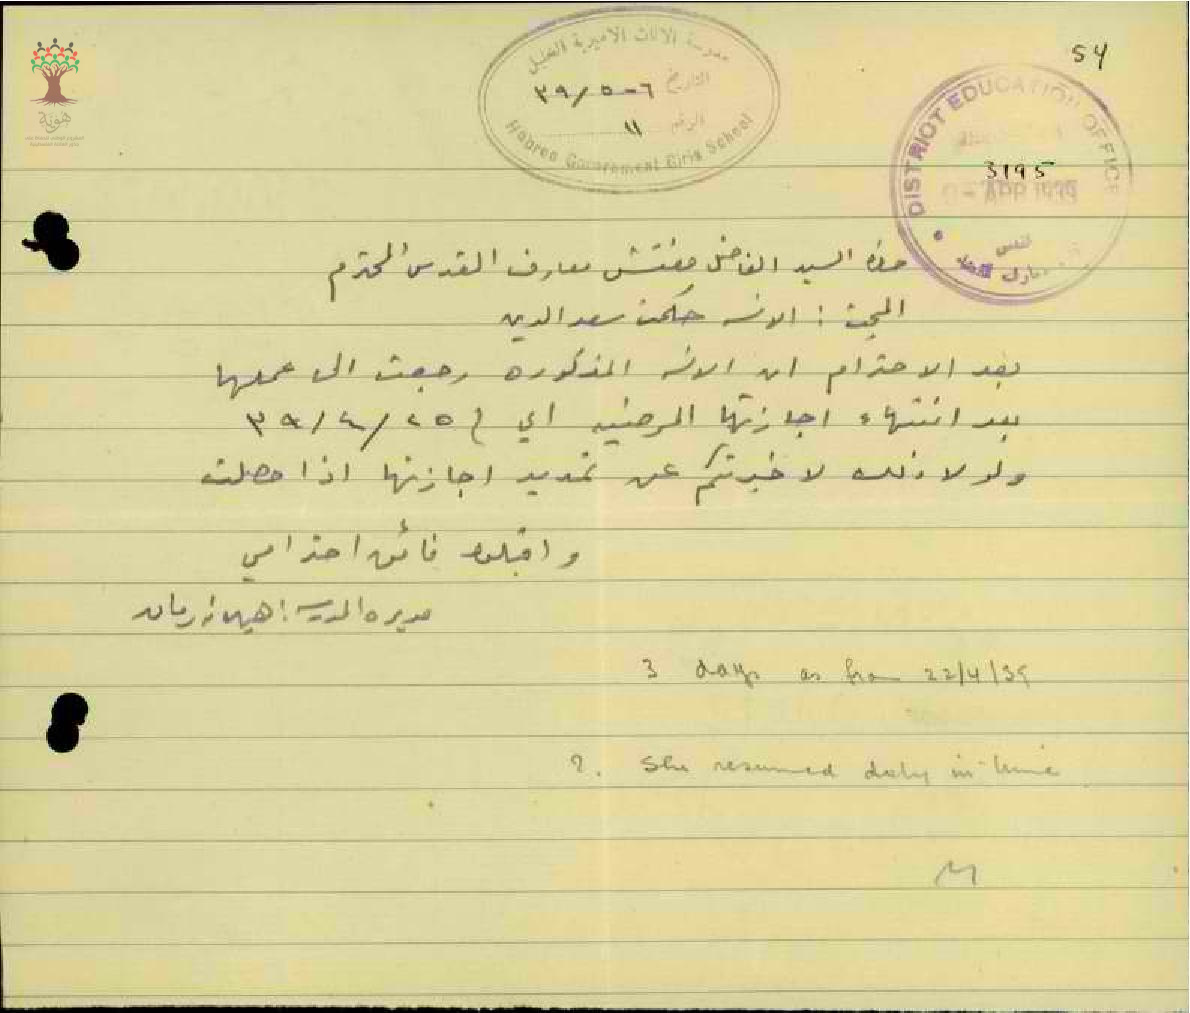 54
مدرسة الاناث الاميرية الخليل
التاريخ ٦-٥/٣٩
الرقم ١١
Hebron Government Girls School
DISTRICT EDUCATION OFFICE
3195
APR 1939
القدس
حضرة السيد الفاضل مفتش معارف القدس المحترم
المبحث : الانسه حكمت سعد الدين
بعد الاحترام ان الانسه المذكوره رجعت الى عملها
بعد انتهاء اجازتها المرضيه اي في ٢٥/٤/٣٩
ولولا ذلك لاخبرتكم عن تمديد اجازتها اذا حصلت
واقبلوا فائق احترامي
مديرة المدرسه :
3 days as from 22/4/39
2. She resumed duty in time
هوية